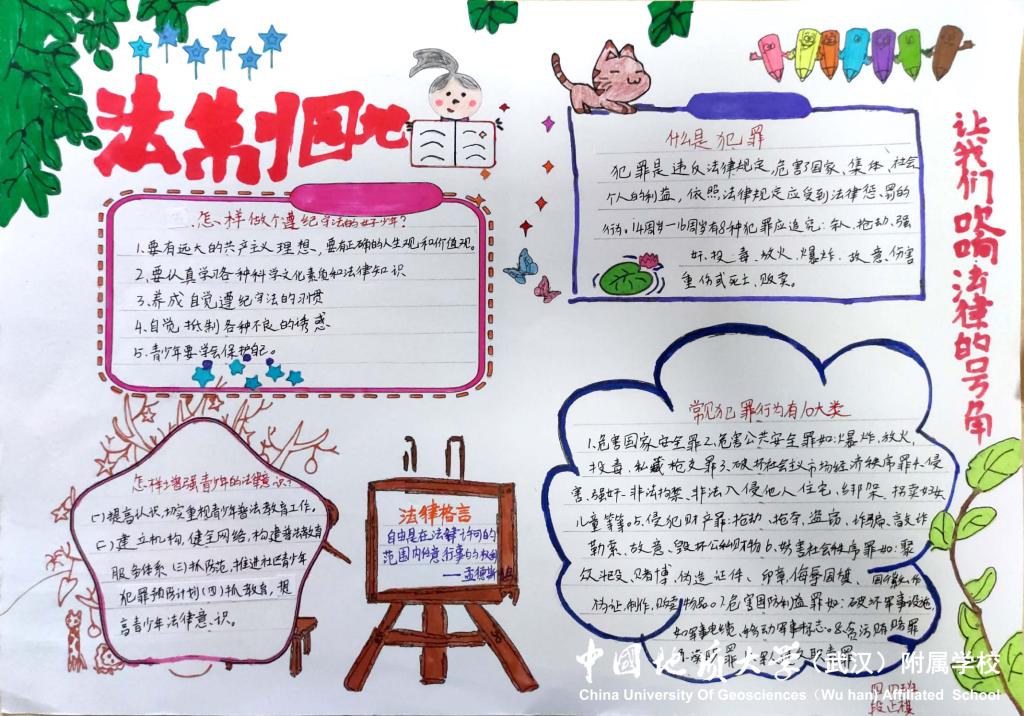 法制园地
怎样做个遵纪守法的好少年?
1.要有远大的共产主义理想、要有正确的人生观和价值观。
2.要认真学习各种科学文化素质和法律知识
3.养成自觉遵纪守法的习惯
4.自觉抵制各种不良的诱惑
5.青少年要学会保护自己。
什么是犯罪
犯罪是违反法律规定,危害了国家、集体、社会
个人的利益,依照法律规定应受到法律惩罚的
行为。14周岁—16周岁有8种犯罪应追究:杀人、抢劫、强
奸、投毒、放火、爆炸、故意、伤害
重伤或死亡、贩卖。
让我们吹响法律的号角
怎样增强青少年的法律意识?
(一)提高认识,切实重视青少年普法教育工作。
(二)建立机构,健全网络,构建普法教育
服务体系(三)抓防范,推进社区青少年
犯罪预防计划(四)抓教育,提
高青少年法律意、识。
法律格言
自由是在法律许可的
范围内任意行事的权利
——孟德斯鸠
常见犯罪行为有10大类
1.危害国家安全罪2.危害公共安全罪如:爆炸、放火,
投毒、私藏枪支罪3.破坏社会主义市场经济秩序罪4.侵
害、强奸、非法拘禁、非法入侵他人住宅、绑架、拐卖妇女
儿童等等。5.侵犯财产罪:抢劫、抢夺、盗窃、诈骗、敲诈
勒索、故意、毁坏公私财物6.妨害社会秩序罪如:聚
众斗殴、赌博、伪造证件、印章,侮辱国旗、国徽、作
伪证,制作,贩卖物品。7.危害国防利益罪如:破坏军事设施
如军事电缆、移动军事标志。8.贪污贿赂罪
9.渎职罪
四四班
段正棋
中國地质大学(武汉)附属学校
China University Of Geosciences(Wu han) Affiliated School